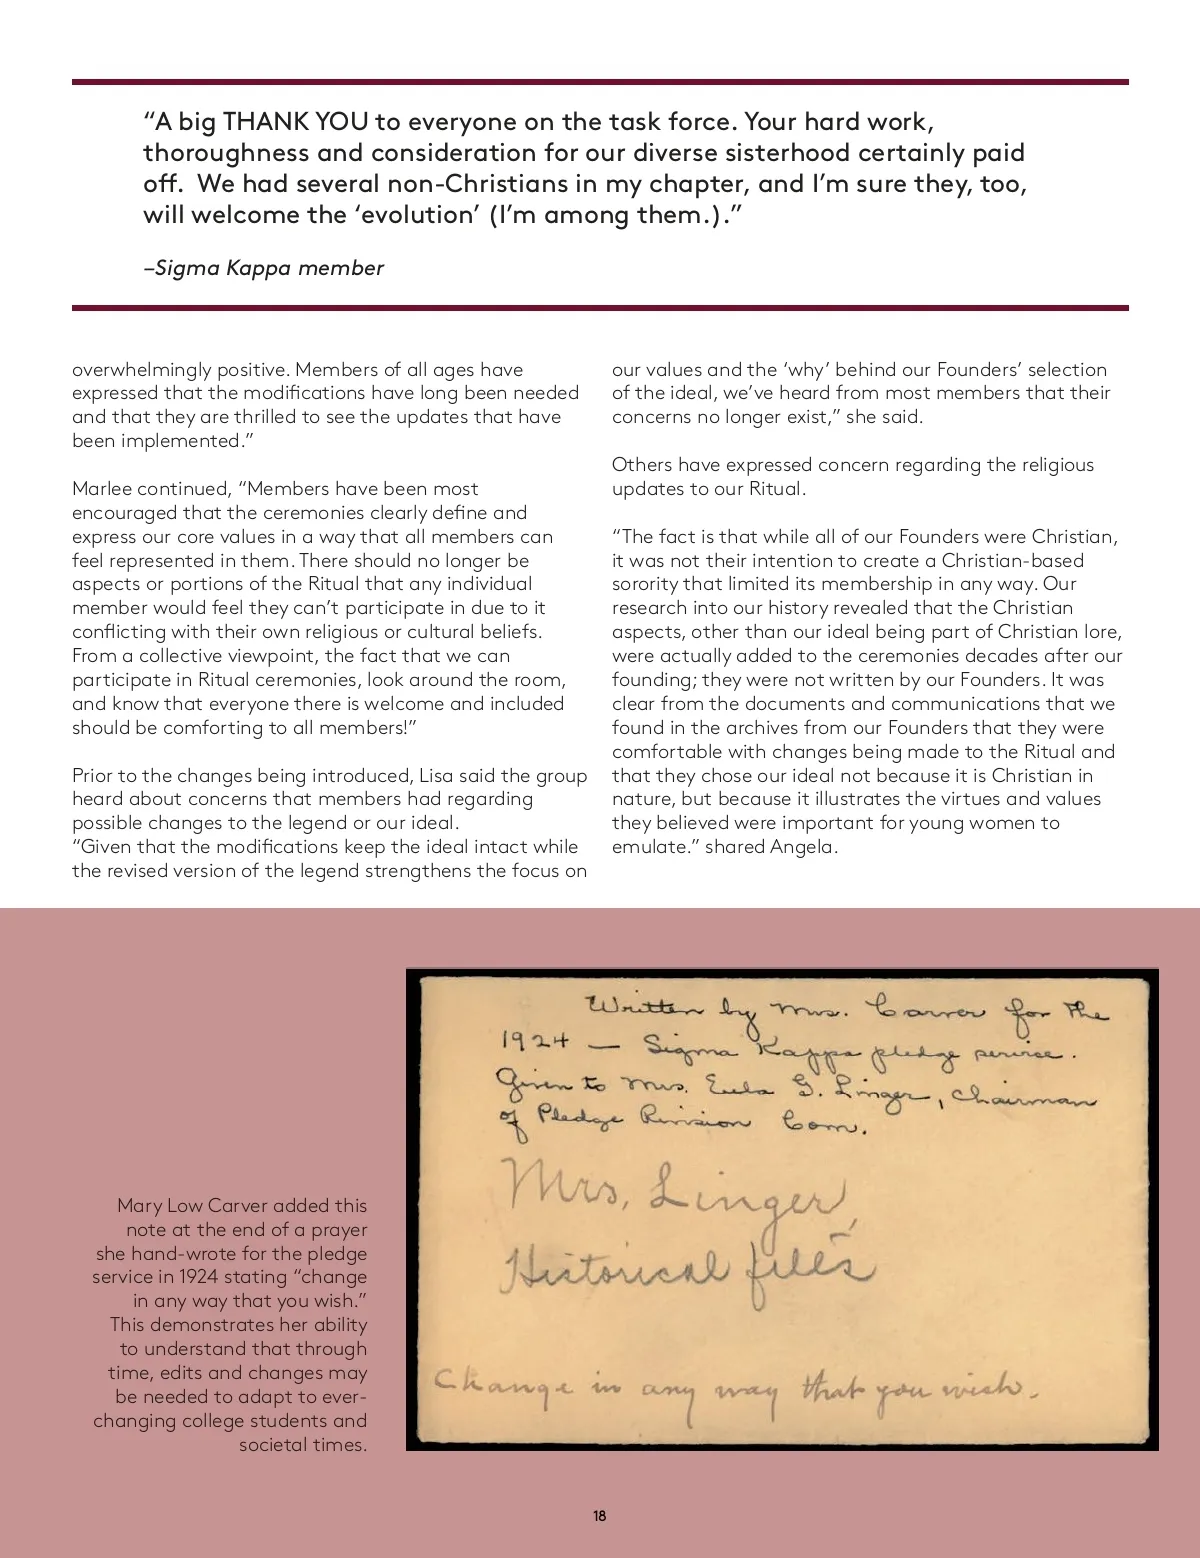 “A big THANK YOU to everyone on the task force. Your hard work,
thoroughness and consideration for our diverse sisterhood certainly paid
off.  We had several non-Christians in my chapter, and I’m sure they, too,
will welcome the ‘evolution’ (I’m among them.).”
–Sigma Kappa member
overwhelmingly positive. Members of all ages have
expressed that the modifications have long been needed
and that they are thrilled to see the updates that have
been implemented.”
Marlee continued, “Members have been most
encouraged that the ceremonies clearly define and
express our core values in a way that all members can
feel represented in them. There should no longer be
aspects or portions of the Ritual that any individual
member would feel they can’t participate in due to it
conflicting with their own religious or cultural beliefs.
From a collective viewpoint, the fact that we can
participate in Ritual ceremonies, look around the room,
and know that everyone there is welcome and included
should be comforting to all members!”
Prior to the changes being introduced, Lisa said the group
heard about concerns that members had regarding
possible changes to the legend or our ideal.
“Given that the modifications keep the ideal intact while
the revised version of the legend strengthens the focus on
our values and the ‘why’ behind our Founders’ selection
of the ideal, we’ve heard from most members that their
concerns no longer exist,” she said.
Others have expressed concern regarding the religious
updates to our Ritual.
“The fact is that while all of our Founders were Christian,
it was not their intention to create a Christian-based
sorority that limited its membership in any way. Our
research into our history revealed that the Christian
aspects, other than our ideal being part of Christian lore,
were actually added to the ceremonies decades after our
founding; they were not written by our Founders. It was
clear from the documents and communications that we
found in the archives from our Founders that they were
comfortable with changes being made to the Ritual and
that they chose our ideal not because it is Christian in
nature, but because it illustrates the virtues and values
they believed were important for young women to
emulate.” shared Angela.
Mary Low Carver added this
note at the end of a prayer
she hand-wrote for the pledge
service in 1924 stating “change
in any way that you wish.”
This demonstrates her ability
to understand that through
time, edits and changes may
be needed to adapt to ever-
changing college students and
societal times.
Written by Mrs. Carver for the
1924 — Sigma Kappa pledge service.
Given to Mrs. Eula G. Linger, Chairman
of Pledge Revision Com.
Mrs. Linger,
Historical files
Change in any way that you wish.
18